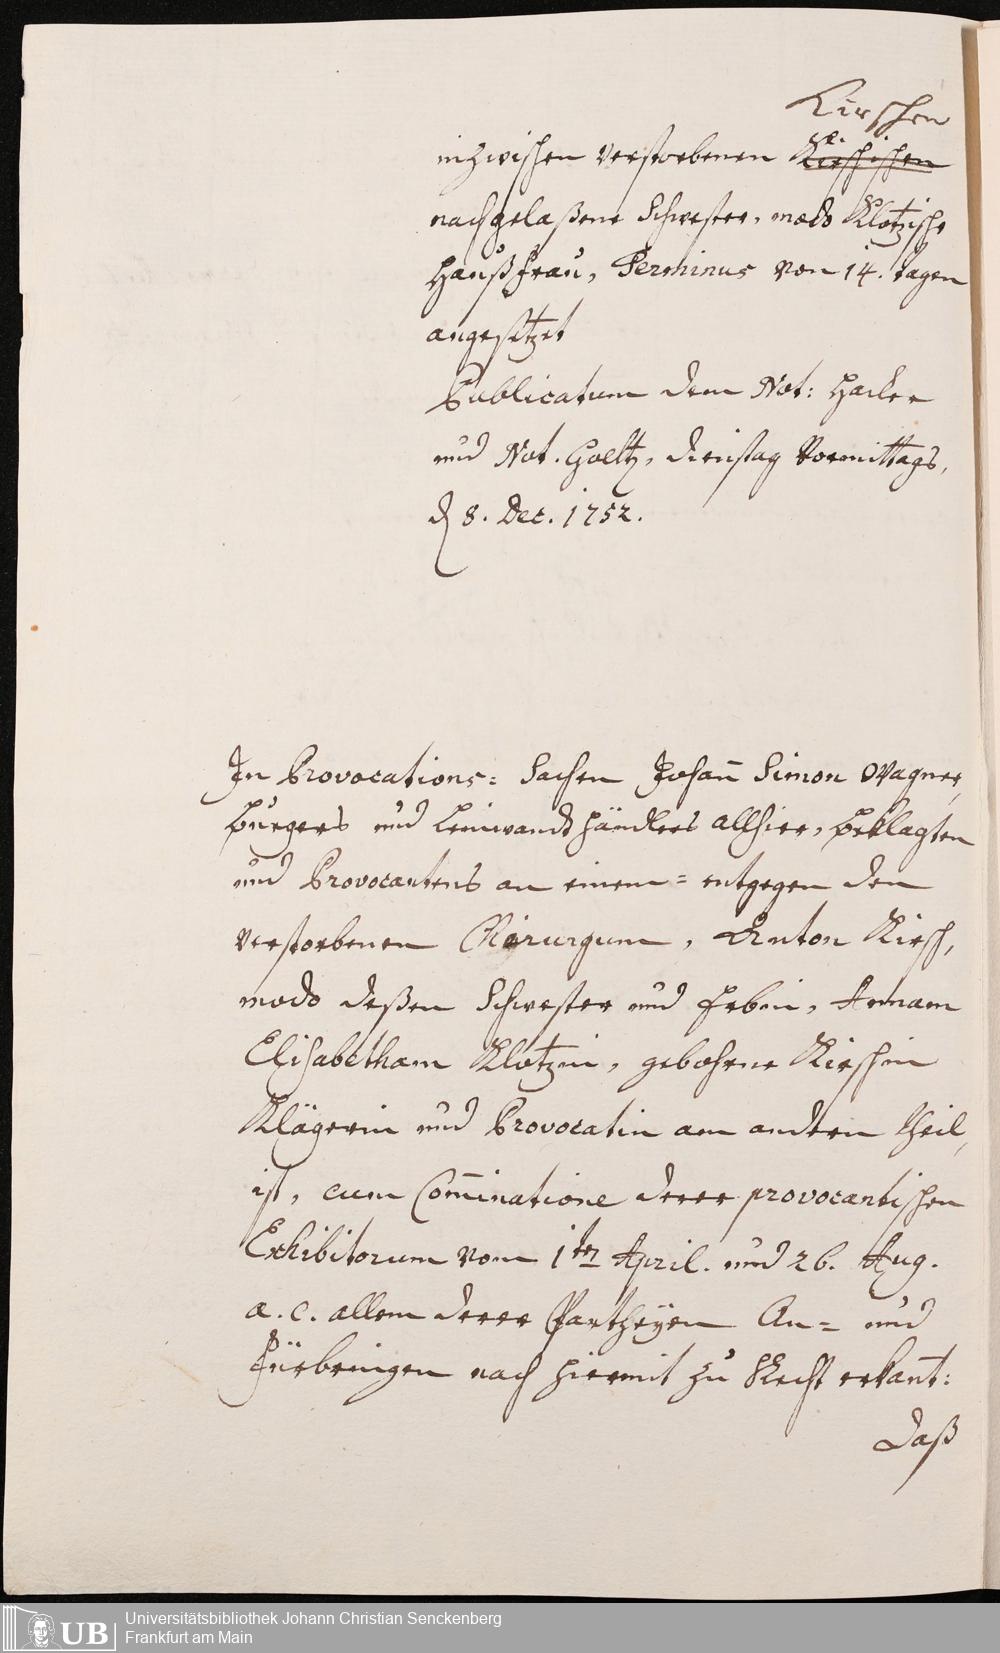 Kirschen
inzwischen verstorbenen Kirschischen
nachgelaßene Schwester, modo Klotzische
Haußfrau, Terminus von 14. tagen
angesetzet
Publicatum dem Not: Hacker
und Not. Goeltz, Dienstag Vormittags,
d 8. Dec. 1752.
In Provocations= Sachen Johan̄ Simon Wagner,
burgers und Leinwandshändlers allhier, beklagten
und Provocantens an einem= entgegen den
verstorbenen Chirurgum, Anton Kirsch,
modo deßen Schwester und Erbin, Annam
Elisabetham Klotzin, gebohrne Kirschin
Klägerin und Provocatin am andern theil,
ist, cum Com̄inatione derer provocantischen
Exhibitorum vom 1ten April. und 26. Aug.
a. c. allem derer Partheyen An= und
Fürbringen nach hiermit zu Recht erkan̄t:
Daß
Universitätsbibliothek Johann Christian Senckenberg
Frankfurt am Main
UB